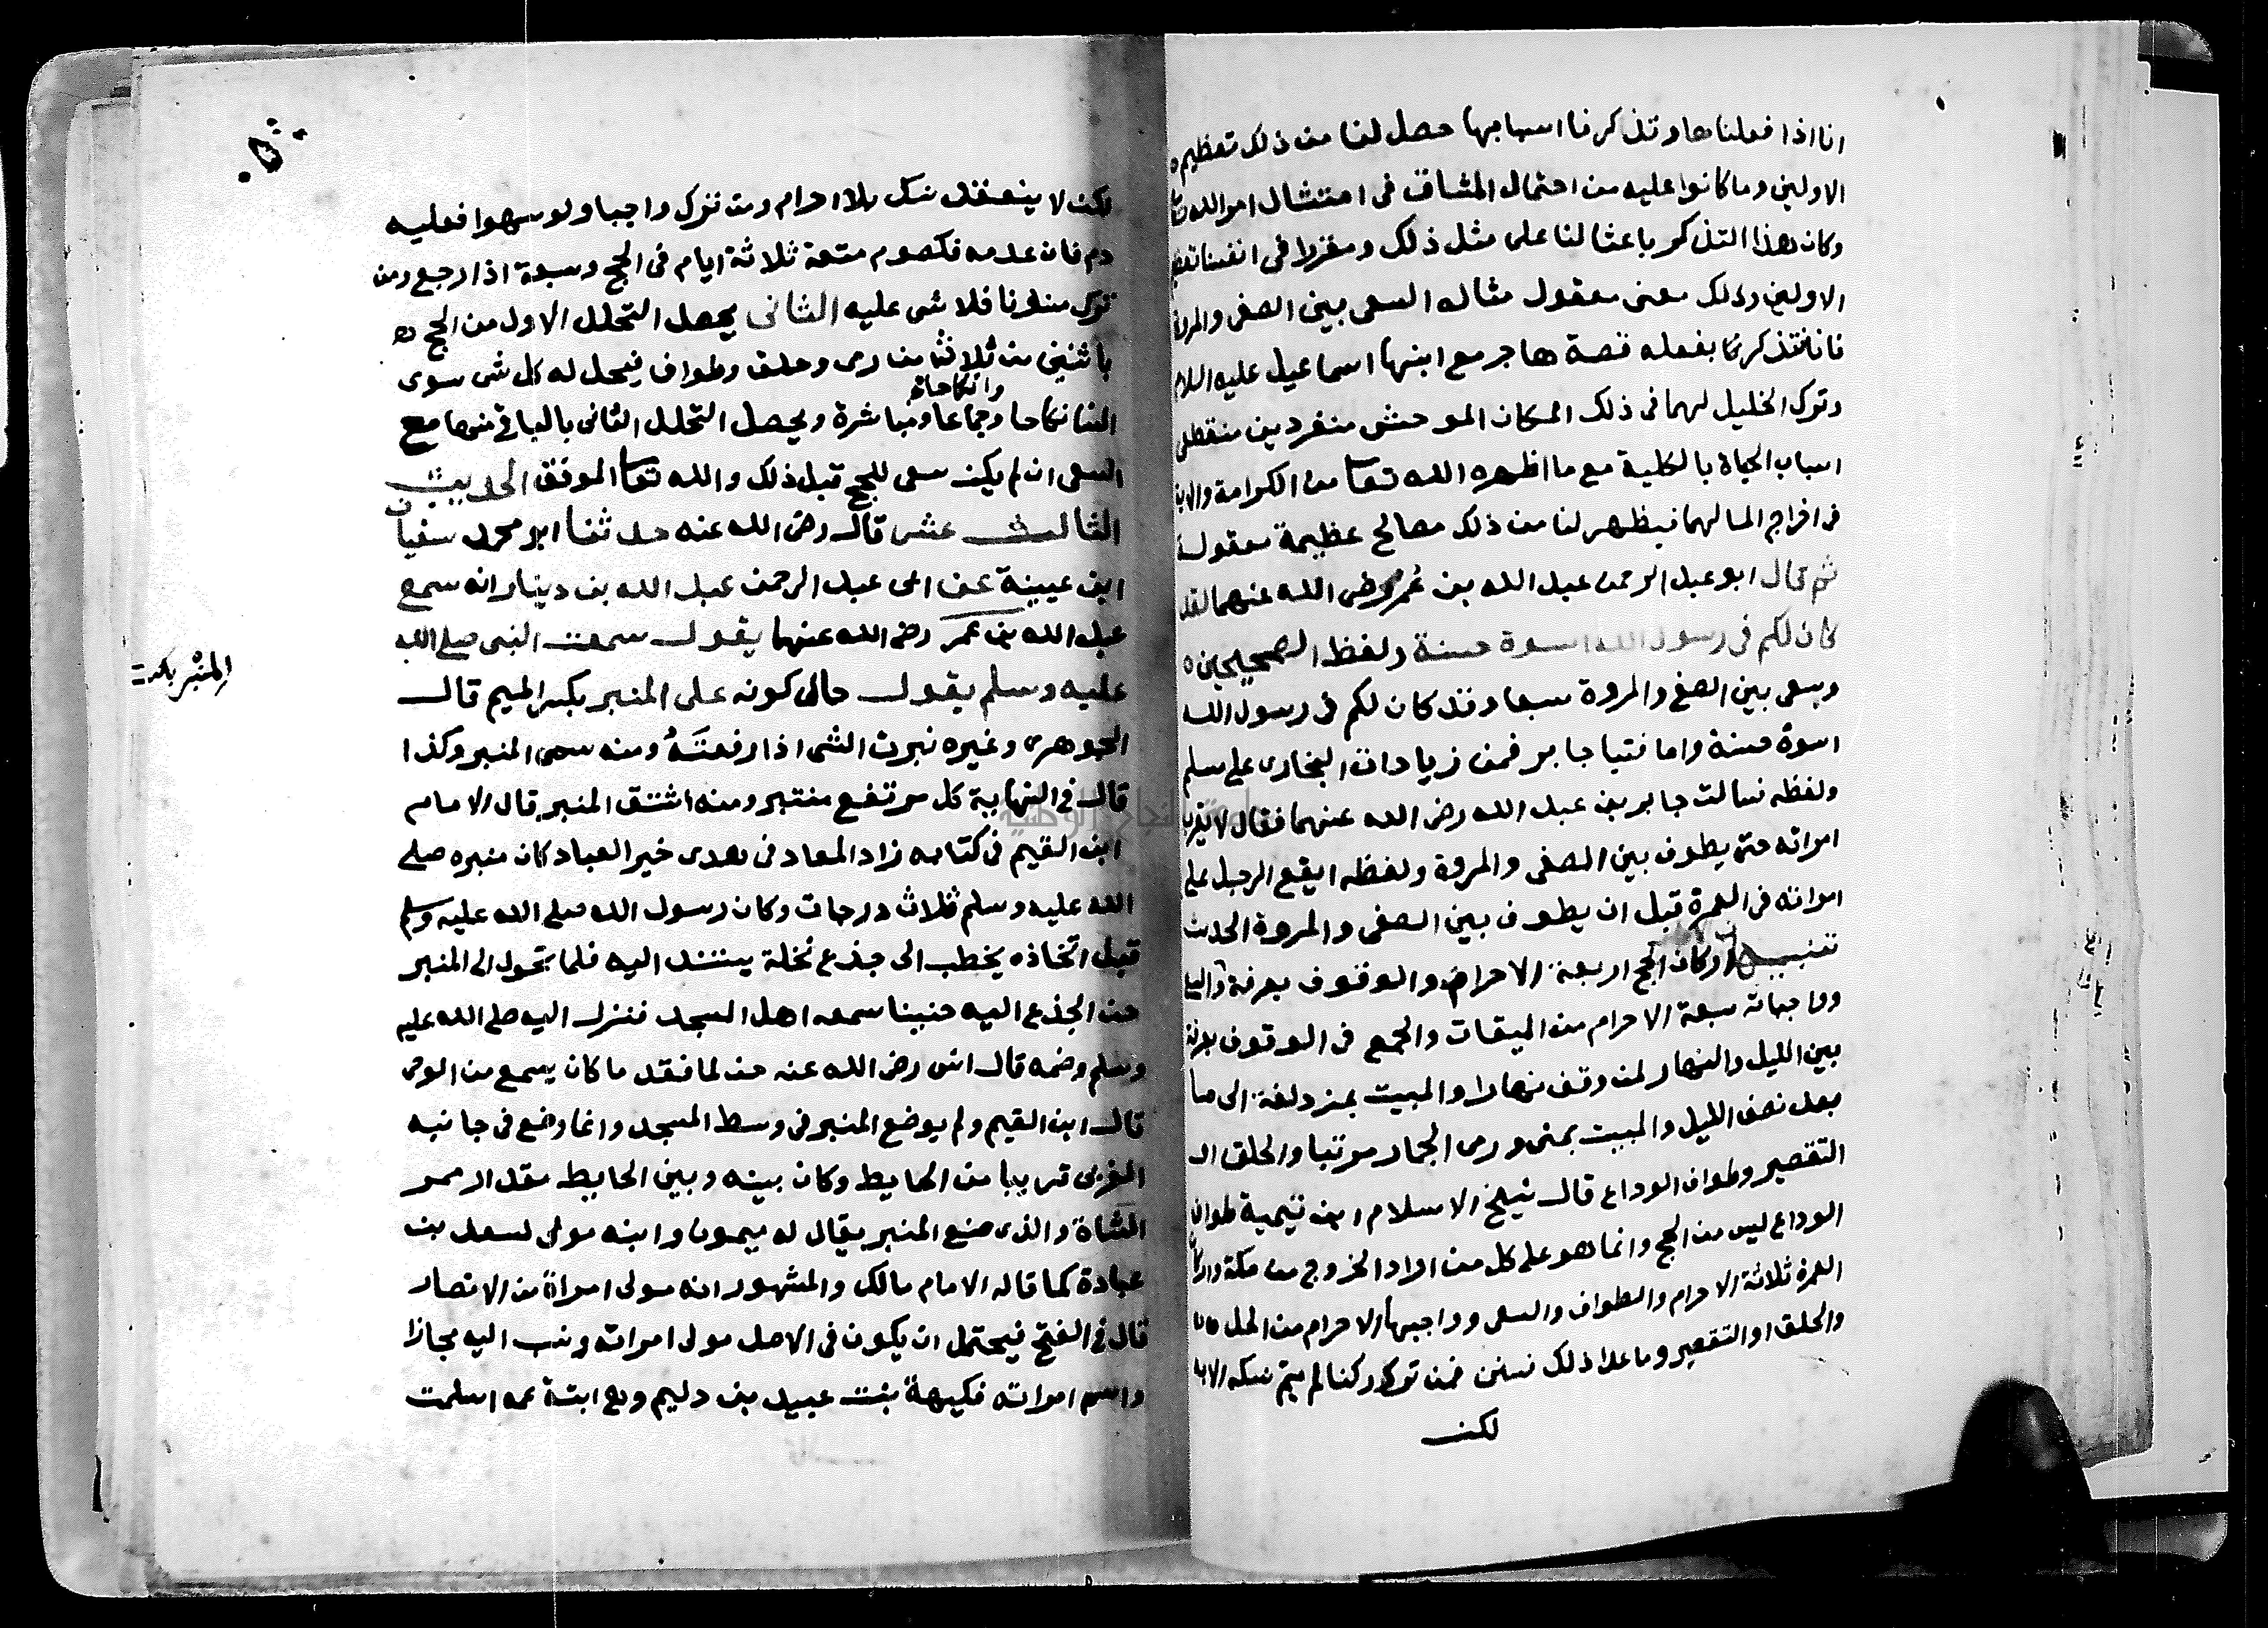 انا اذا فعلناها وتذكرنا اسبابها حصل لنا من ذلك تعظيم
الاولين وما كانوا عليه من احتمال المشاق في امتثال امر الله تعا
وكان هذا التذكر باعثا لنا على مثل ذلك ومقررا في انفسنا تعظيم
الاولين وذلك معنى معقول مثاله السعى بين الصفى والمروة
فانا نتذكرنا بفعله قصة هاجر مع ابنها اسماعيل عليه السلام
وترك الخليل لهما في ذلك المكان الموحش منفردين منقطعى
اسباب الحياة بالكلية مع ما اظهره الله تعا من الكرامة والاية
في اخراج الما لهما فيظهر لنا من ذلك مصالح عظيمة معقولة
ثم قال ابو عبد الرحمن عبد الله بن عمر رضى الله عنهما لقد
كان لكم في رسول الله اسوة حسنة ولفظ الصحيحين
وسعى بين الصفى والمروة سبعا وقد كان لكم في رسول الله
اسوة حسنة واما فتيا جابر فمن زيادات البخارى على مسلم
ولفظه نسالت جابر بن عبد الله رضى الله عنهما فقال لا يقرب
امراته حتى يطوف بين الصفى والمروة ولفظه ايقع الرجل على
امراته في العمرة قبل ان يطوف بين الصفى والمروة الحديث
تنبيه اركان الحج اربعة الاحرام والوقوف بعرفة
وواجباته سبعة الاحرام من الميقات والجمع في الوقوف بعرفة
بين الليل والنهار لمن وقف نهارا والمبيت بمزدلفة الى ما
بعد نصف الليل والمبيت بمنى ورمى الجمار مرتبا والحلق او
التقصير وطواف الوداع قال شيخ الاسلام ابن تيمية طواف
الوداع ليس من الحج وانما هو على كل من اراد الخروج من مكة واركان
العمرة ثلاثة الاحرام والطواف والسعى وواجبها الاحرام من الحل
والحلق او التقصير وما عدا ذلك سنن فمن ترك ركنا لم يتم نسكه الا به
لكن
لكن لا ينعقد نسك بلا احرام ومن ترك واجبا ولو سهوا فعليه
دم فان عدمه فكصوم متعة ثلاثة ايام في الحج وسبعة اذا رجع ومن
ترك مسنونا فلا شى عليه الثانى يحصل التحلل الاول من الحج
باثنين من ثلاث من رمى وحلق وطواف فيحل له كل شى سوى
النسا نكاحا وجماعا ومباشرة ويحصل التحلل الثانى بالباقى منها مع
السعى ان لم يكن سعى للحج قبل ذلك والله تعا الموفق الحديث
الثالث عشر قال رضى الله عنه حدثنا ابو محمد سفيان
ابن عيينة عن ابى عبد الرحمن عبد الله بن دينار انه سمع
عبد الله بن عمر رضى الله عنهما يقول سمعت النبى صلى الله
عليه وسلم يقول حالى كونه على المنبر بكسر الميم قال
الجوهرى وغيره نبرت الشى اذا رفعته ومنه سمى المنبر وكذا
قال في النهاية كل مرتفع منتبر ومنه اشتق المنبر قال الامام
ابن القيم في كتابه زاد المعاد في هدى خير العباد كان منبره صلى
الله عليه وسلم ثلاث درجات وكان رسول الله صلى الله عليه وسلم
قبل اتخاذه يخطب الى جذع نخلة يستند اليه فلما تحول الى المنبر
حن الجذع اليه حنينا سمعه اهل المسجد فنزل اليه صلى الله عليه
وسلم وضمه قال انس رضى الله عنه حن لما فقد ما كان يسمع من الوحى
قال ابن القيم ولم يوضع المنبر في وسط المسجد وانما وضع في جانبه
الغربى قريبا من الحايط وكان بينه وبين الحايط مقدار ممر
الشاة والذى صنع المنبر يقال له ميمون وانه مولى لسعد بن
عبادة كما قاله الامام مالك والمشهور انه مولى امراة من الانصار
قال في الفتح فيحتمل ان يكون في الاصل مولى امراته ونسب اليه مجازا
واسم امراته فكيهة بنت عبيد بن دليم وهى ابنة عمه اسلمت
المنبر بكسر